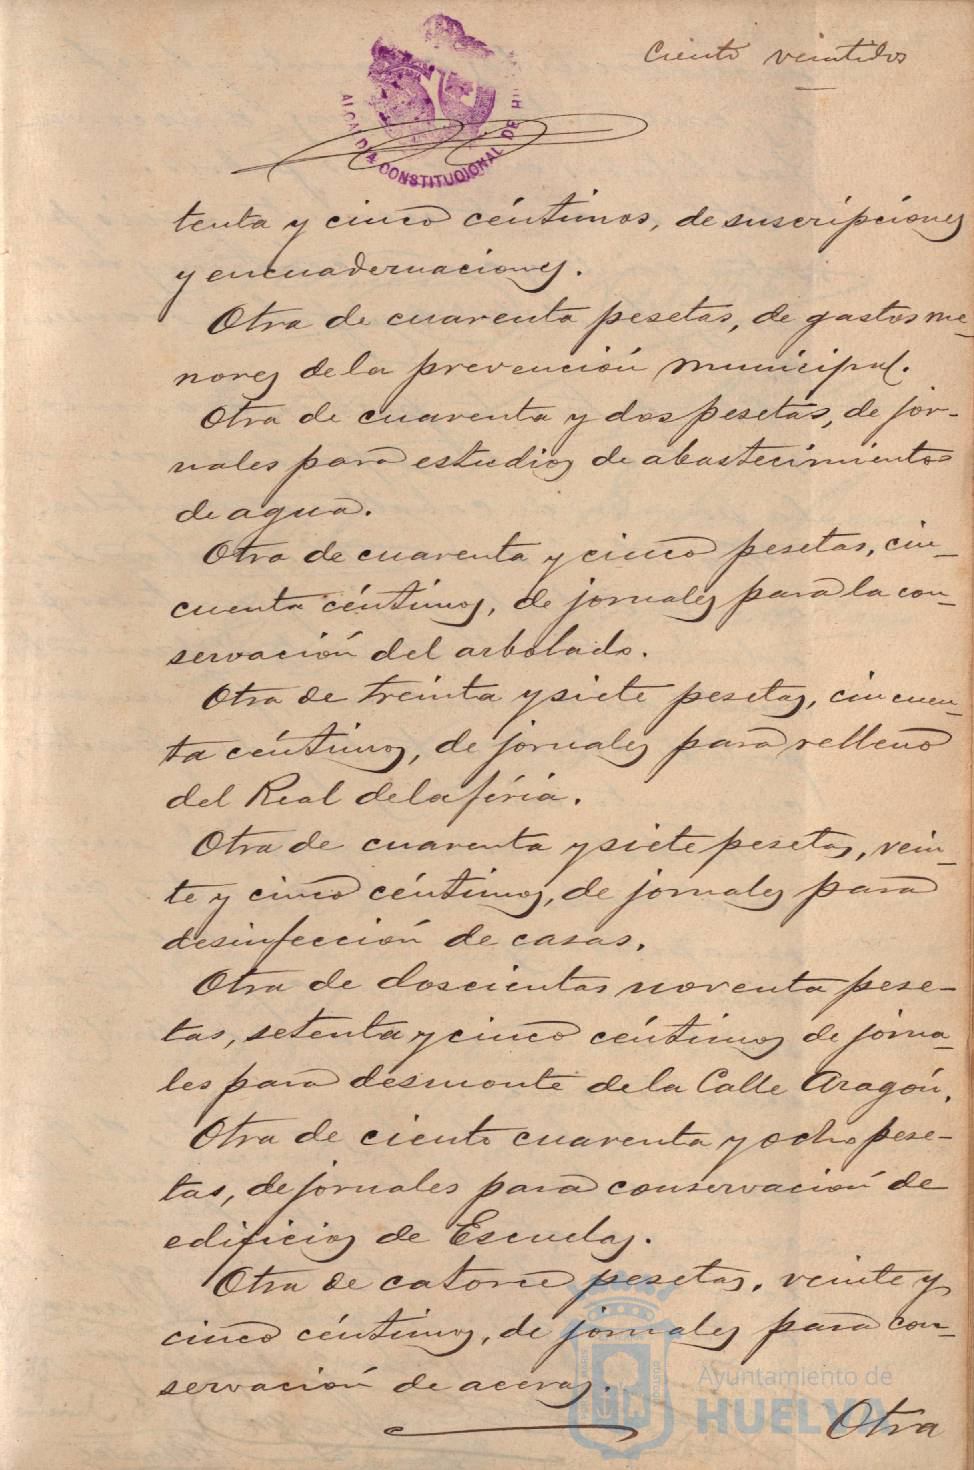 Ciento veintidos
ALCALDIA CONSTITUCIONAL DE HU
tenta y cinco céntimos, de suscripciones
y encuadernaciones.
Otra de cuarenta pesetas, de gastos me-
nores de la prevención municipal.
Otra de cuarenta y dos pesetas, de jor-
nales para estudios de abastecimientos
de agua.
Otra de cuarenta y cinco pesetas, cin-
cuenta céntimos, de jornales para la con-
servación del arbolado.
Otra de treinta y siete pesetas, cincuen-
ta céntimos, de jornales para relleno
del Real de la féria.
Otra de cuarenta y siete pesetas, vein-
te y cinco céntimos, de jornales para
desinfección de casas.
Otra de doscientas noventa pese-
tas, setenta y cinco céntimos de jorna-
les para desmonte de la Calle Aragón.
Otra de ciento cuarenta y ocho pese-
tas, de jornales para conservación de
edificios de Escuelas.
Otra de catorce pesetas, veinte y
cinco céntimos, de jornales para con-
servación de aceras.
Ayuntamiento de
HUELVA
Otra